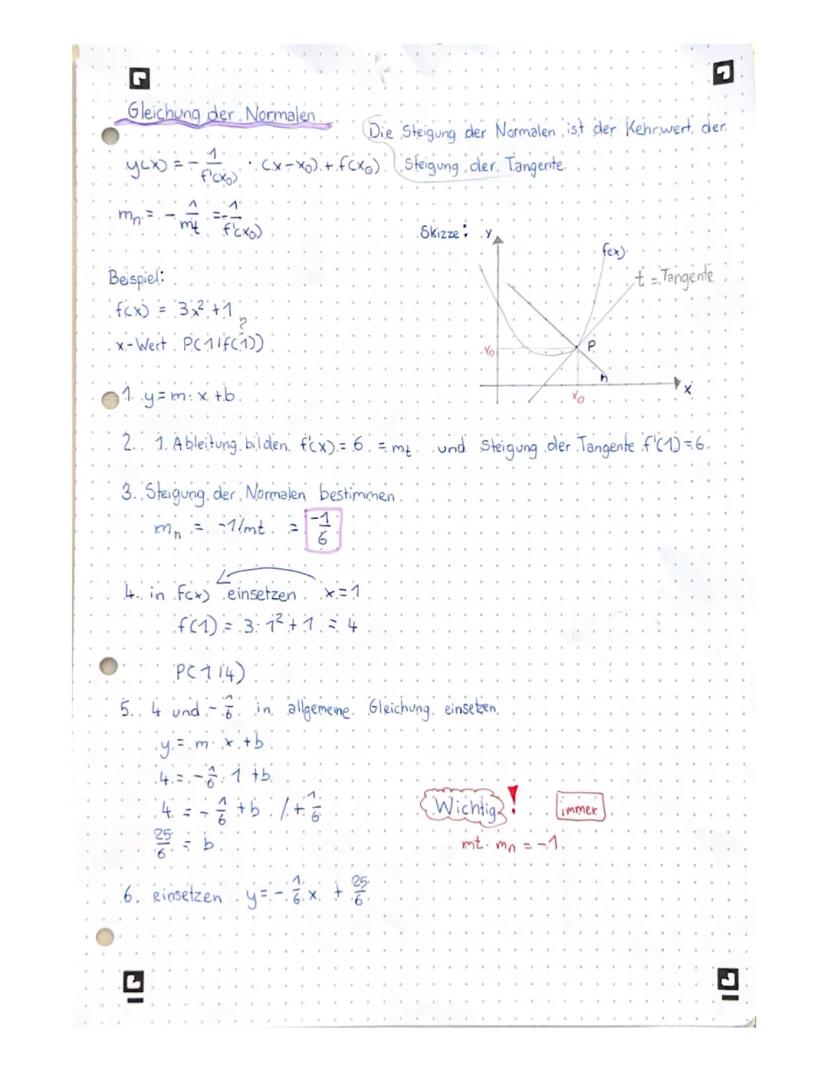 Gleichung der Normalen
Die Steigung der Normalen ist der Kehrwert der
Steigung der Tangente
y(x) = - 1/f'(x₀) · (x-x₀) + f(x₀)
mₙ = - 1/mt = - 1/f'(x₀)
Skizze:
y
f(x)
t = Tangente
y₀
P
n
x
x₀
Beispiel:
f(x) = 3x² + 1
?
x-Wert P(1|f(1))
1. y = m · x + b
2. 1. Ableitung bilden f'(x) = 6 = mt und Steigung der Tangente f'(1) = 6.
3. Steigung der Normalen bestimmen
mₙ = -1/mt = -1/6
4. in f(x) einsetzen x=1
f(1) = 3 · 1² + 1 = 4
P(1|4)
5. 4 und - 1/6 in allgemeine Gleichung einsetzen
y = m · x + b
4 = - 1/6 · 1 + b
4 = - 1/6 + b /+ 1/6
25/6 = b
Wichtig !
immer
mt · mₙ = -1
6. einsetzen y = - 1/6 x + 25/6